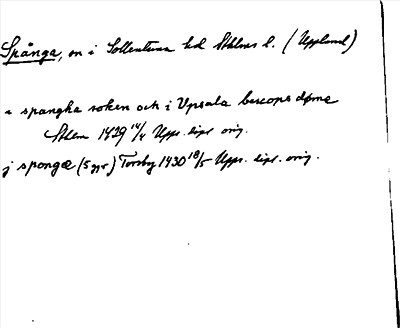 Spånga, sn i Sollentuna hd Sthlms l. (Uppland)
a spangha soken och i Vpsala bescops døme
Sthlm 1439 14/4 Upps. dipl. orig.
j spongæ (5 ggr) Torsby 1430 18/5 Upps. dipl. orig.